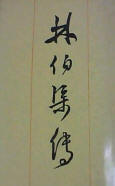 林伯渠傳